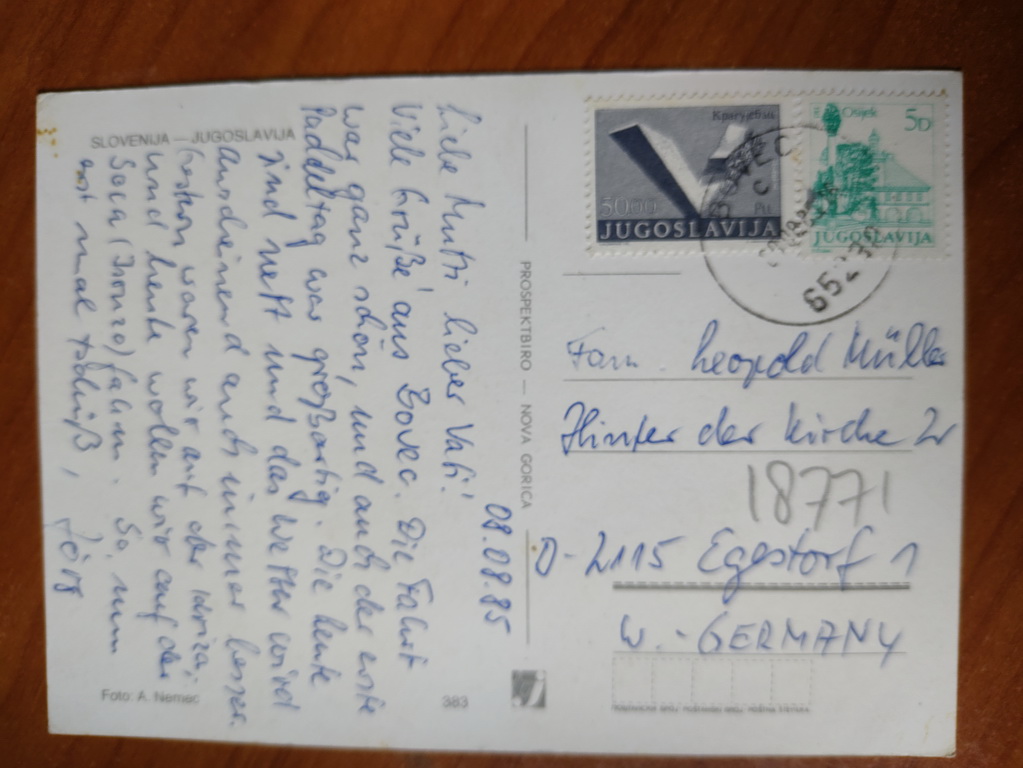 SLOVENIJA — JUGOSLAVIJA
08.08.85
Liebe Mutti, lieber Vati!
Viele Grüße aus Bovec. Die Fahrt
war ganz schön, und auch der erste
Paddeltag war großartig. Die Leute
sind nett und das Wetter wird
anscheinend auch immer besser.
Gestern waren wir auf der
und heute wollen wir auf der
Soca (Isonzo) fahren. So, nun
erst mal tschüß,
Jörg
Foto: A. Nemec
383
PROSPEKTBIRO — NOVA GORICA
Крагујевац
5000
JUGOSLAVIJA
Osijek
5D
JUGOSLAVIJA
652
Fam. Leopold Müller
Hinter der Kirche 2
18771
D-2115 Egestorf 1
W.-GERMANY